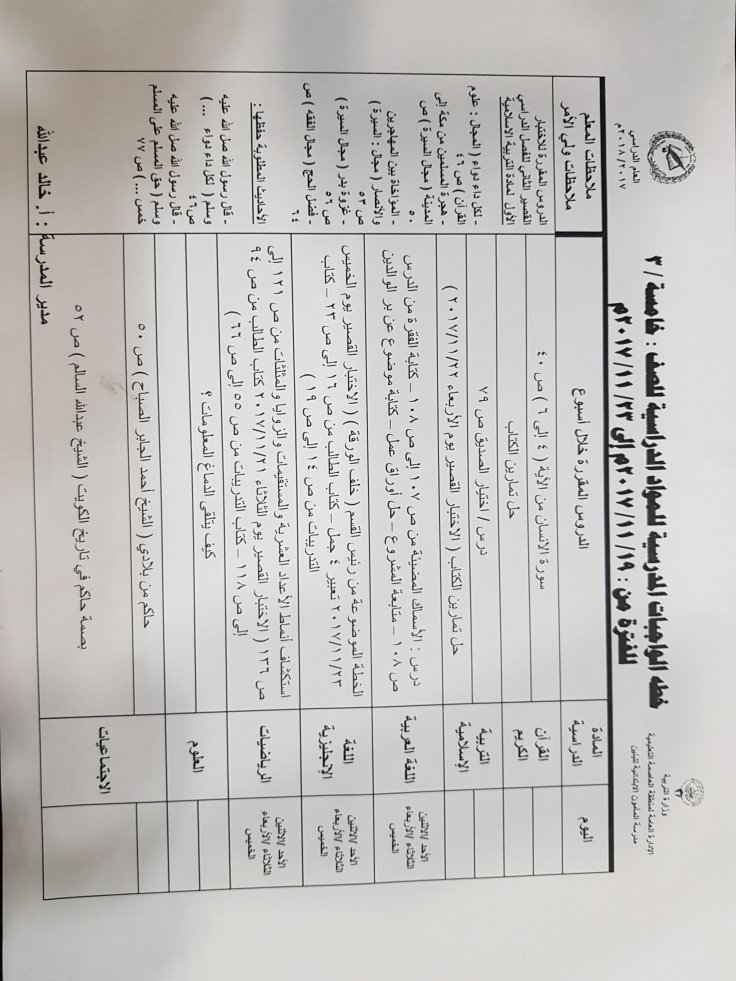 وزارة التربية
الإدارة العامة لمنطقة العاصمة التعليمية
مدرسة المأمون الابتدائية للبنين
العام الدراسي
٢٠١٧ / ٢٠١٨ م
خطة الواجبات المدرسية للمواد الدراسية للصف : خامسة / ٣
للفترة من : ١٩ / ١١ / ٢٠١٧م إلى ٢٣ / ١١ / ٢٠١٧م
اليوم
المادة الدراسية
الدروس المقررة خلال أسبوع
ملاحظات المعلم
ملاحظات ولي الأمر
القرآن الكريم
سورة الانسان من الآية ( ٤ إلى ٦ ) ص ٤٠
حل تمارين الكتاب
التربية الإسلامية
درس / اختيار الصديق ص ٧٩
حل تمارين الكتاب ( الاختبار القصير يوم الأربعاء ٢٠١٧/١١/٢٢ )
الأحد /الاثنين
الثلاثاء /الأربعاء
الخميس
اللغة العربية
درس : الأسماك المضيئة من ص ١٠٧ إلى ص ١٠٨ – كتابة الفقرة من الدرس
ص ١٠٨ – متابعة المشروع – حل أوراق عمل – كتابة موضوع عن بر الوالدين
الأحد /الاثنين
الثلاثاء /الأربعاء
الخميس
اللغة الإنجليزية
الخطة الموضوعة من رئيس القسم ( خلف الورقة ) ( الاختبار القصير يوم الخميس
٢٠١٧/١١/٢٣ تعبير ٤ جمل – كتاب الطالب من ص ١٦ إلى ص ٢٣ – كتاب
التدريبات من ص ١٤ إلى ص ١٩ )
الأحد /الاثنين
الثلاثاء /الأربعاء
الخميس
الرياضيات
استكشاف أنماط الأعداد العشرية والمستقيمات والزوايا والمثلثات من ص ١٢١ إلى
ص ١٣٦ ( الاختبار القصير يوم الثلاثاء ٢٠١٧/١١/٢١ كتاب الطالب من ص ٩٤
إلى ص ١١٨ – كتاب التدريبات من ص ٥٥ إلى ص ٦٦ )
العلوم
كيف يتلقى الدماغ المعلومات ؟
الاجتماعيات
حاكم من بلادي ( الشيخ أحمد الجابر الصباح ) ص ٥٠
بصمة حاكم في تاريخ الكويت ( الشيخ عبدالله السالم ) ص ٥٢
الدروس المقررة للاختبار
القصير الثاني للفصل الدراسي
الأول لمادة التربية الاسلامية
- لكل داء دواء ( المجال : علوم
القرآن ) ص ٤٦
- هجرة المسلمين من مكة إلى
المدينة ( مجال السيرة ) ص
٥٠
- المؤاخاة بين المهاجرين
والانصار ( مجال : السيرة )
ص ٥٣
- غزوة بدر ( مجال السيرة )
ص ٥٦
- فضل الحج ( مجال الفقه ) ص
٦٤
الأحاديث المطلوبة حفظها :
- قال رسول الله صل الله عليه
وسلم ( لكل داء دواء ... )
ص ٤٦
- قال رسول الله صل الله عليه
وسلم ( حق المسلم على المسلم
خمس ... ) ص ٧٧
مدير المدرسة : أ. خالد عبدالله